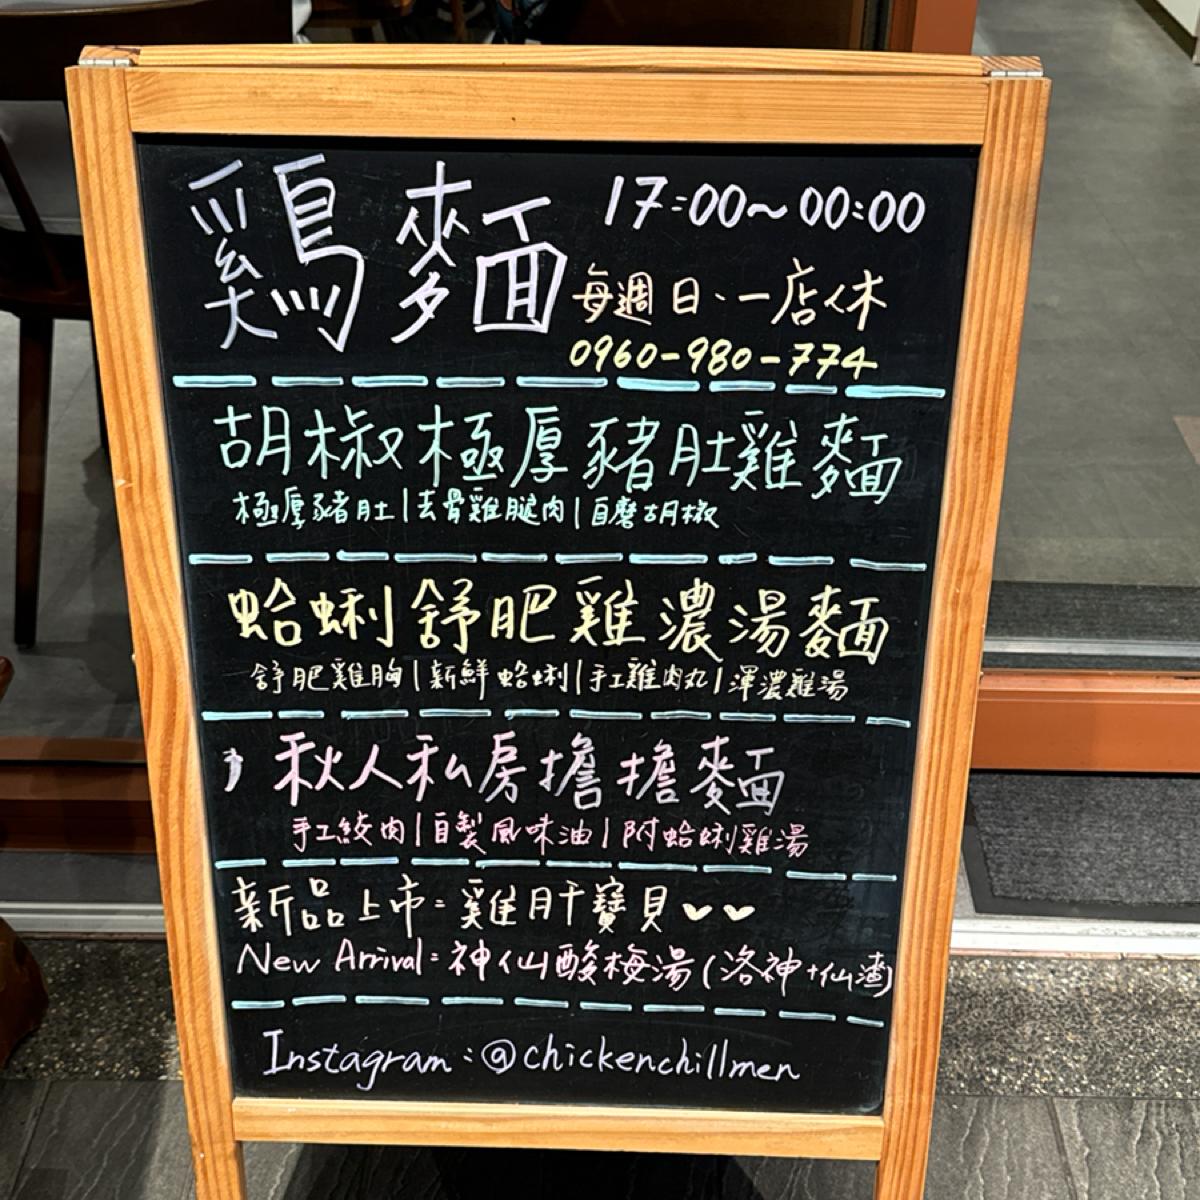 鷄麵 17:00~00:00
每週日、一店休
0960-980-774
胡椒極厚豬肚雞麵
極厚豬肚|去骨雞腿肉|自磨胡椒
蛤蜊舒肥雞濃湯麵
舒肥雞胸|新鮮蛤蜊|手工雞肉丸|渾濃雞湯
秋人私房擔擔麵
手工絞肉|自製風味油|附蛤蜊雞湯
新品上市:雞肝寶貝
New Arrival:神仙酸梅湯(洛神+仙渣)
Instagram:@chickenchillmen